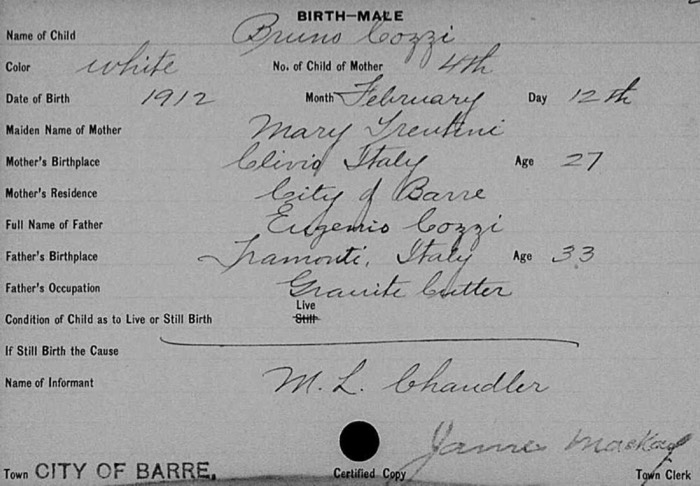 BIRTH—MALE
Name of Child Bruno Cozzi
Color white No. of Child of Mother 4th
Date of Birth 1912 Month February Day 12th
Maiden Name of Mother Mary Trentini
Mother's Birthplace Clivio Italy Age 27
Mother's Residence City of Barre
Full Name of Father Eugenio Cozzi
Father's Birthplace Tramonti, Italy Age 33
Father's Occupation Granite Cutter
Live
Condition of Child as to Live or Still Birth Still
If Still Birth the Cause
Name of Informant M. L. Chandler
James Mackay
Town CITY OF BARRE, Certified Copy Town Clerk